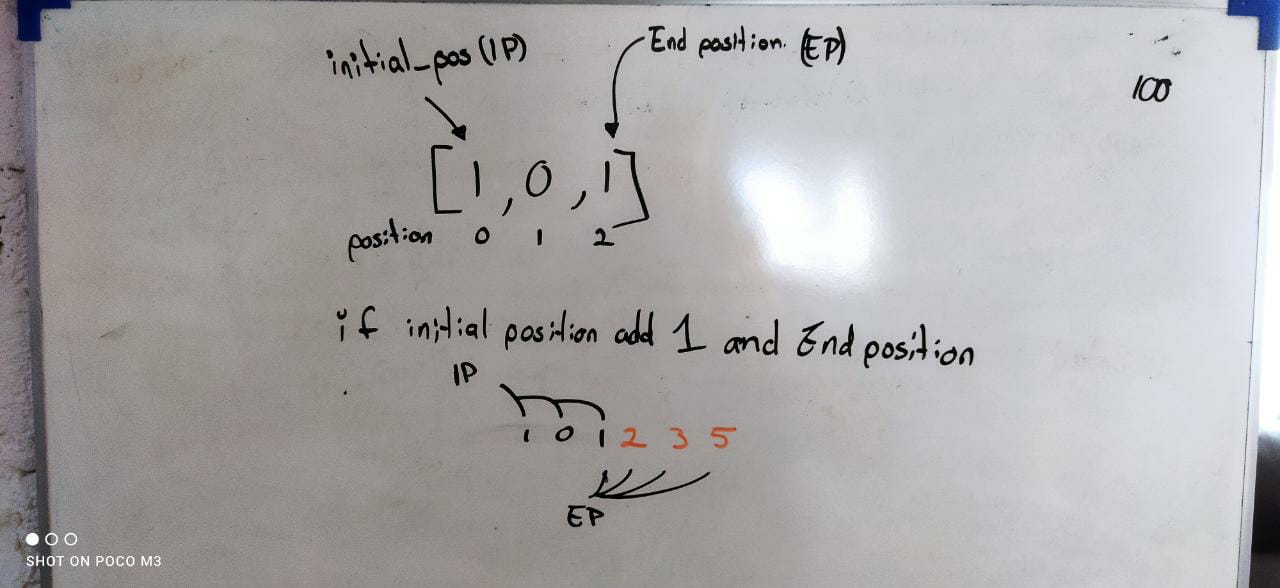 initial_pos (IP)
End position. (EP)
100
[1, 0, 1]
position 0 1 2
if initial position add 1 and End position
IP
1 0 1 2 3 5
EP
SHOT ON POCO M3